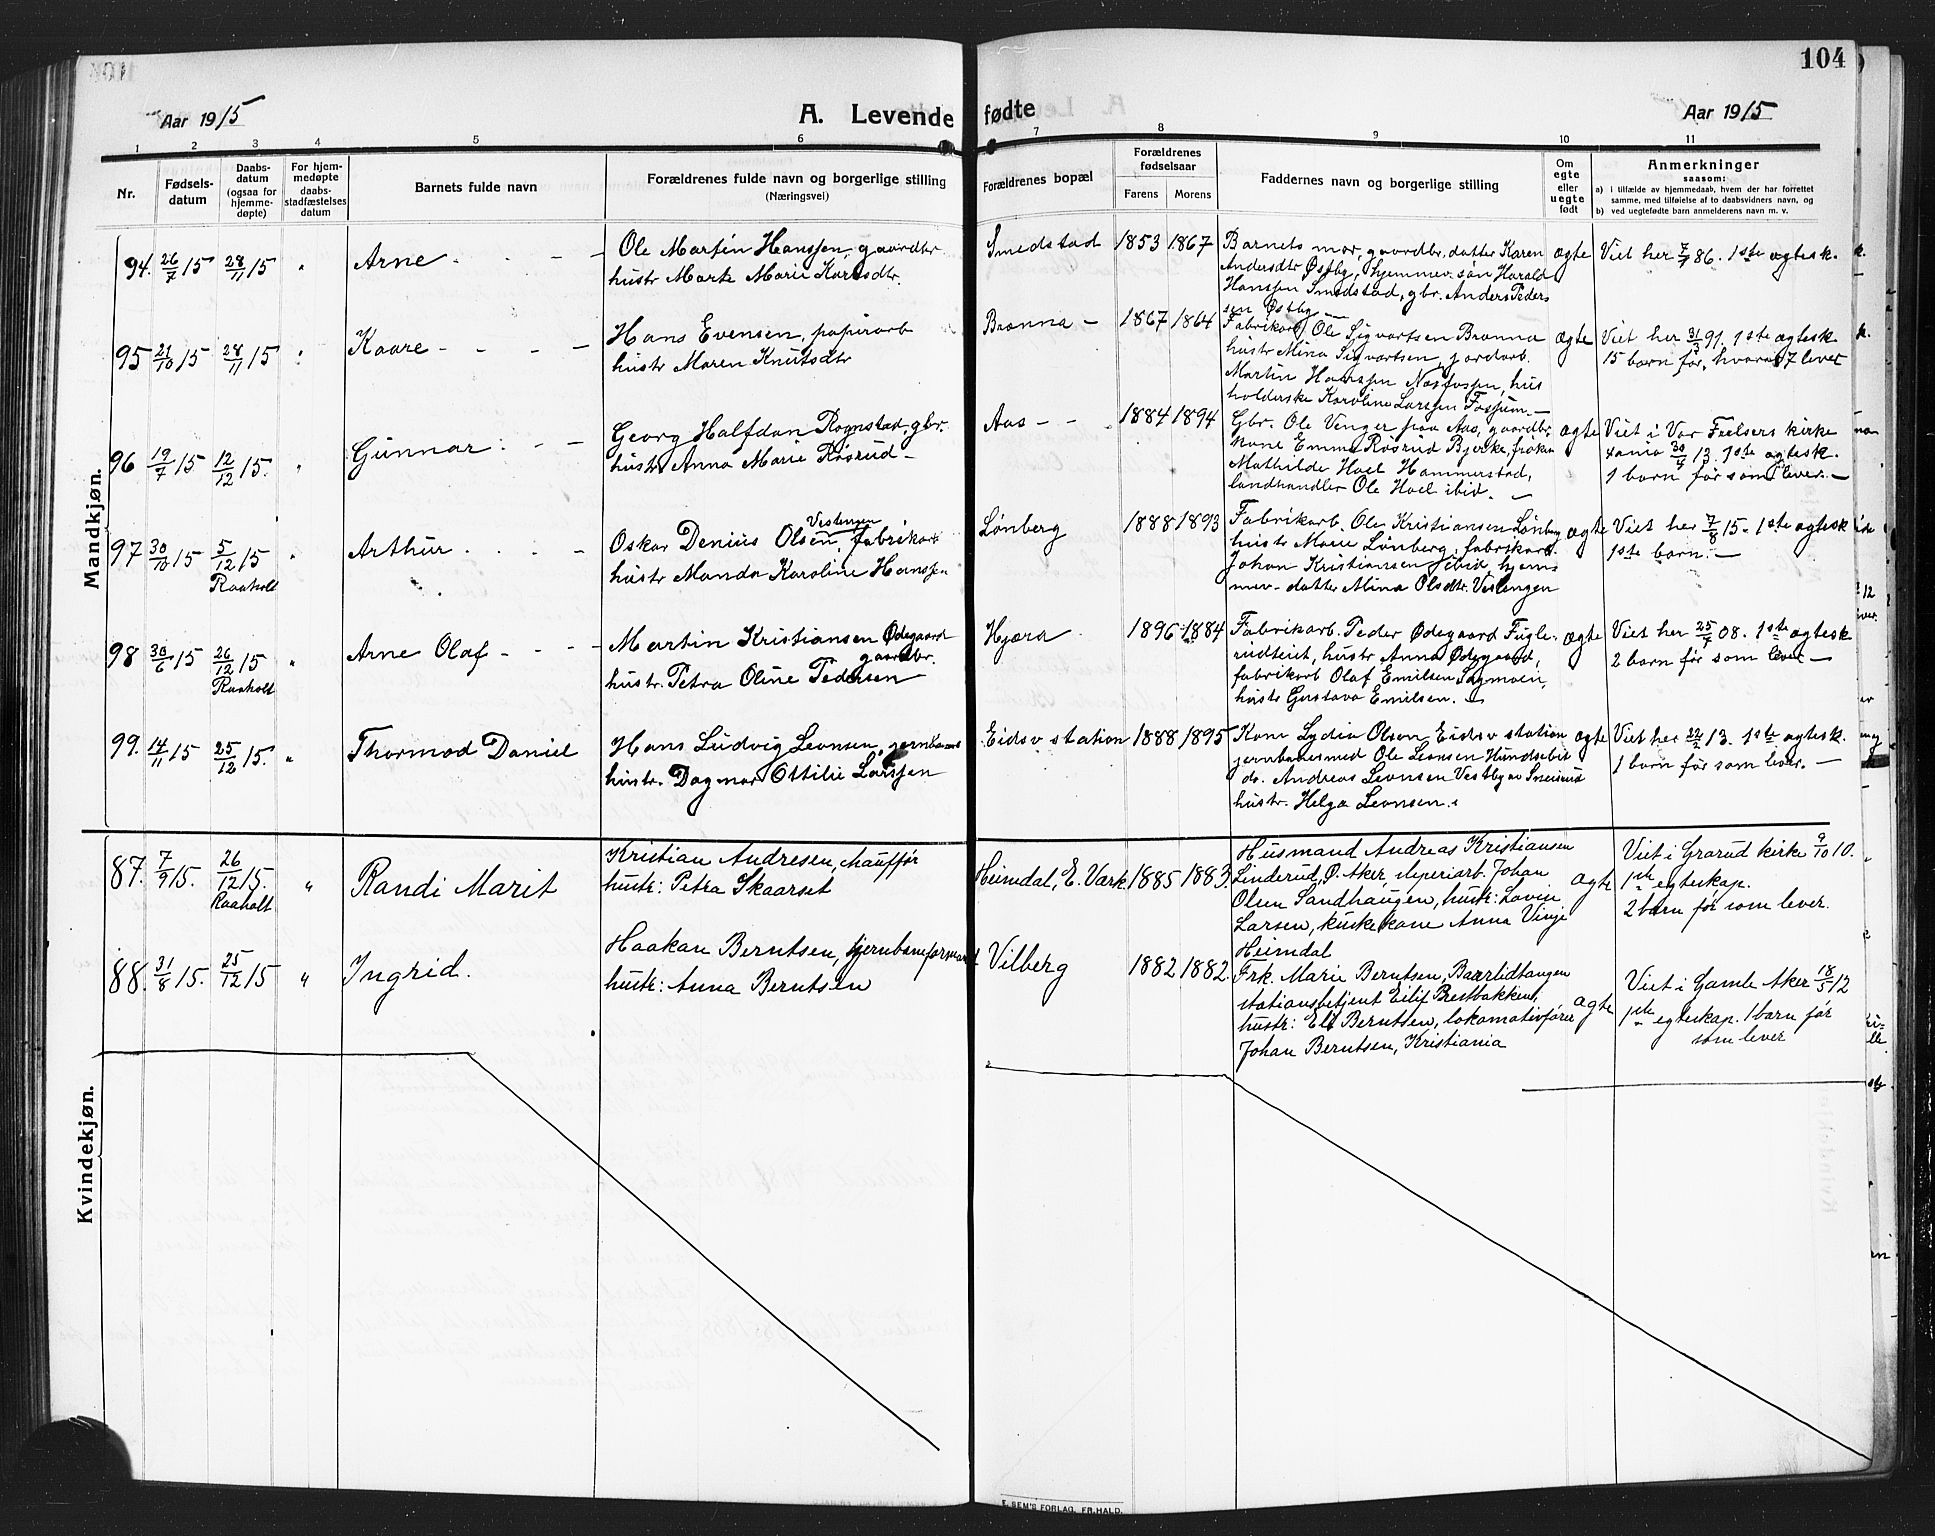 104
Aar 1915
A. Levende fødte
Aar 1915
1 2 3 4 5 6 7 8 9 10 11
Nr.
Fødsels-
datum
Daabs-
datum
(ogsaa for
hjemme-
døpte)
For hjem-
medøpte
daabs-
stadfæstelses
datum
Barnets fulde navn
Forældrenes fulde navn og borgerlige stilling
(Næringsvei)
Forældrenes bopæl
Forældrenes
fødselsaar
Farens Morens
Faddernes navn og borgerlige stilling
Om
egte
eller
uegte
født
Anmerkninger
saasom:
a) i tilfælde av hjemmedaab, hvem der har forrettet
samme, med tilføielse af to daabsvidners navn, og
b) ved uegtefødte barn anmelderens navn m. v.
Mandkjøn.
94. 26/7 15 28/11 15 " Arne
Ole Martin Hanssen, gaardbr.
hustr Marte Marie Karlsdtr.
Smedstad 1853 1867
Barnets mor, gaardbr. datter Karen
Andersdtr Østby, hjemmev. søn Harald
Hanssen Smedstad, gbr. Anders Peders
sen Østby
ægte
Viet her 7/7 86. 1ste ægtesk.
95 21/10 15 28/11 15 " Kaare
Hans Evensen, papirarb
hustr Maren Knutsdtr
Brønna 1867 1864
Fabrikarb. Ole Sigvartsen Brønna
hustr Mina Sigvartsen, jordarb.
Martin Hanssen Næsfossen, hus
holderske Karoline Larssen Fossum.
ægte
Viet her 31/3 91. 1ste ægtesk
15 barn før, hvoraf 7 lever
96 19/7 15 12/12 15. " Gunnar
Georg Halfdan Rognstad, gbr.
hustr Anna Marie Røsrud
Aas 1884 1894
Gbr. Ole Venger paa Aas, gaardbr.
kone Emma Røsrud Bjerke, frøken
Mathilde Hoel Hammerstad,
landhandler Ole Hoel ibid.
ægte
Viet i Vor Frelsers kirke
Xania 30/4 13. 1ste ægtesk.
1 barn før som lever.
97 30/10 15 5/12 15 Raaholt " Arthur
Oskar Denius Olsen Veslengen, fabrikarb
hustr Manda Karoline Hanssen
Lønberg 1888 1893
Fabrikarb. Ole Kristiansen Lønberg
hustr Marie Lønberg, fabrikarb.
Johan Kristiansen ibid, hjem
mev. datter Mina Olsdtr. Veslengen
ægte
Viet her 7/8 15. 1ste ægtesk
1ste barn.
98 30/6 15 26/12 15 Raaholt " Arne Olaf
Martin Kristiansen Ødegaard
gaardbr.
hustr. Petra Oline Pedersen
Hjæra 1896 1884
Fabrikarb. Peder Ødegaard Fugle-
rudteiet, hustr Anna Ødegaard,
fabrikarb Olaf Emilsen Sagmoen,
hustr Gustava Emilsen.
ægte
Viet her 25/7 08. 1ste ægtesk
2 barn før som lever
99. 14/11 15 25/12 15. " Thormod Daniel
Hans Ludvig Leonsen, jernbanearb
hustr. Dagmar Ottilie Larssen
Eidsv station 1888 1895
Kone Lydia Olsen Eidsv station
jernbanesmed Ole Leonsen Hundsebit
do. Andreas Leonsen Vestby av
hustr. Helga Leonsen.
ægte
Viet her 22/2 13. 1ste ægtesk.
1 barn før som lever.
Kvindekjøn.
87. 7/9 15. 26/12 15. Raaholt " Randi Marit
Kristian Andresen, chauffør
hustr: Petra Skaarset
Heimdal, E. Værk 1885 1883.
Husmand Andreas Kristiansen
Linderud, Ø. Aker, sliperiarb. Johan
Olsen Sandhaugen, hustr: Lovise
Larsen, kuskekone Anna Vinje
Heimdal
ægte
Viet i Grorud kirke 9/10 10.
1ste egteskap.
2 barn før som lever.
88. 31/8 15. 25/12 15 " Ingrid.
Haakan Berntsen, jernbaneformand
hustr: Anna Berntsen
Vilberg 1882 1882.
Frk. Marie Berntsen, Baarlidtangen
stationsbetjent Eilif Brestbakken,
hustr: Eli Berntsen, lokomotivfører
Johan Berntsen, Kristiania
ægte
Viet i Gamle Aker 18/5 12
1ste egteskap. 1 barn før
som lever
E. SEM'S FORLAG, FR.HALD.